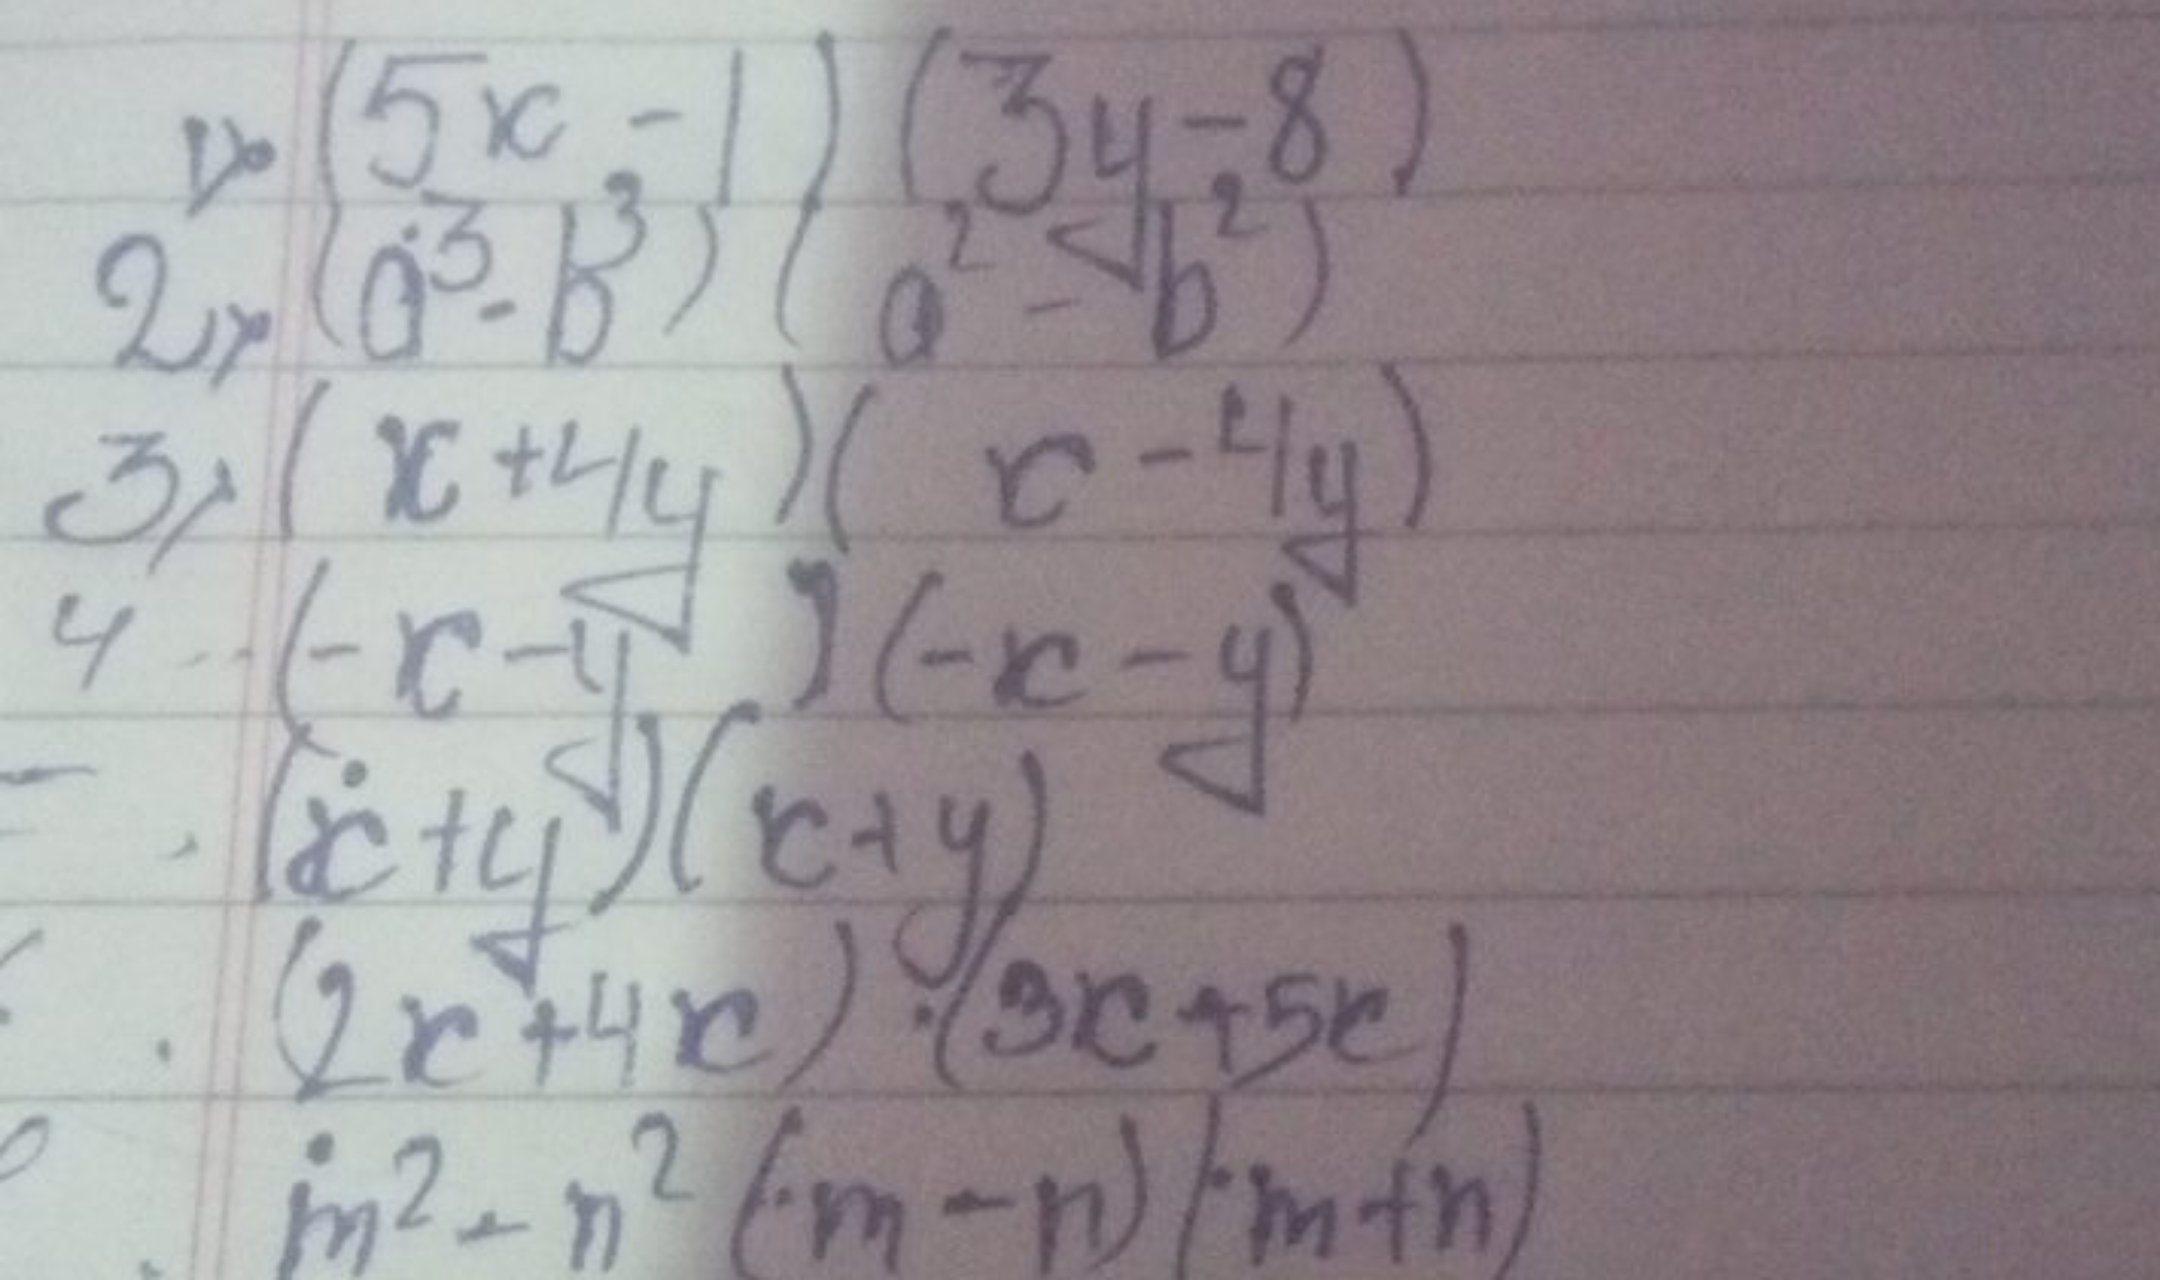 1) (5x - 1) (3y - 8)
2) (a³ - b³) (a² - b²)
3) (x + 4y) (x - 4y)
4 (-x - y) (-x - y)
(x + y) (x + y)
(2x + 4x) · (3x + 5x)
m² - n² (m - n) (m + n)